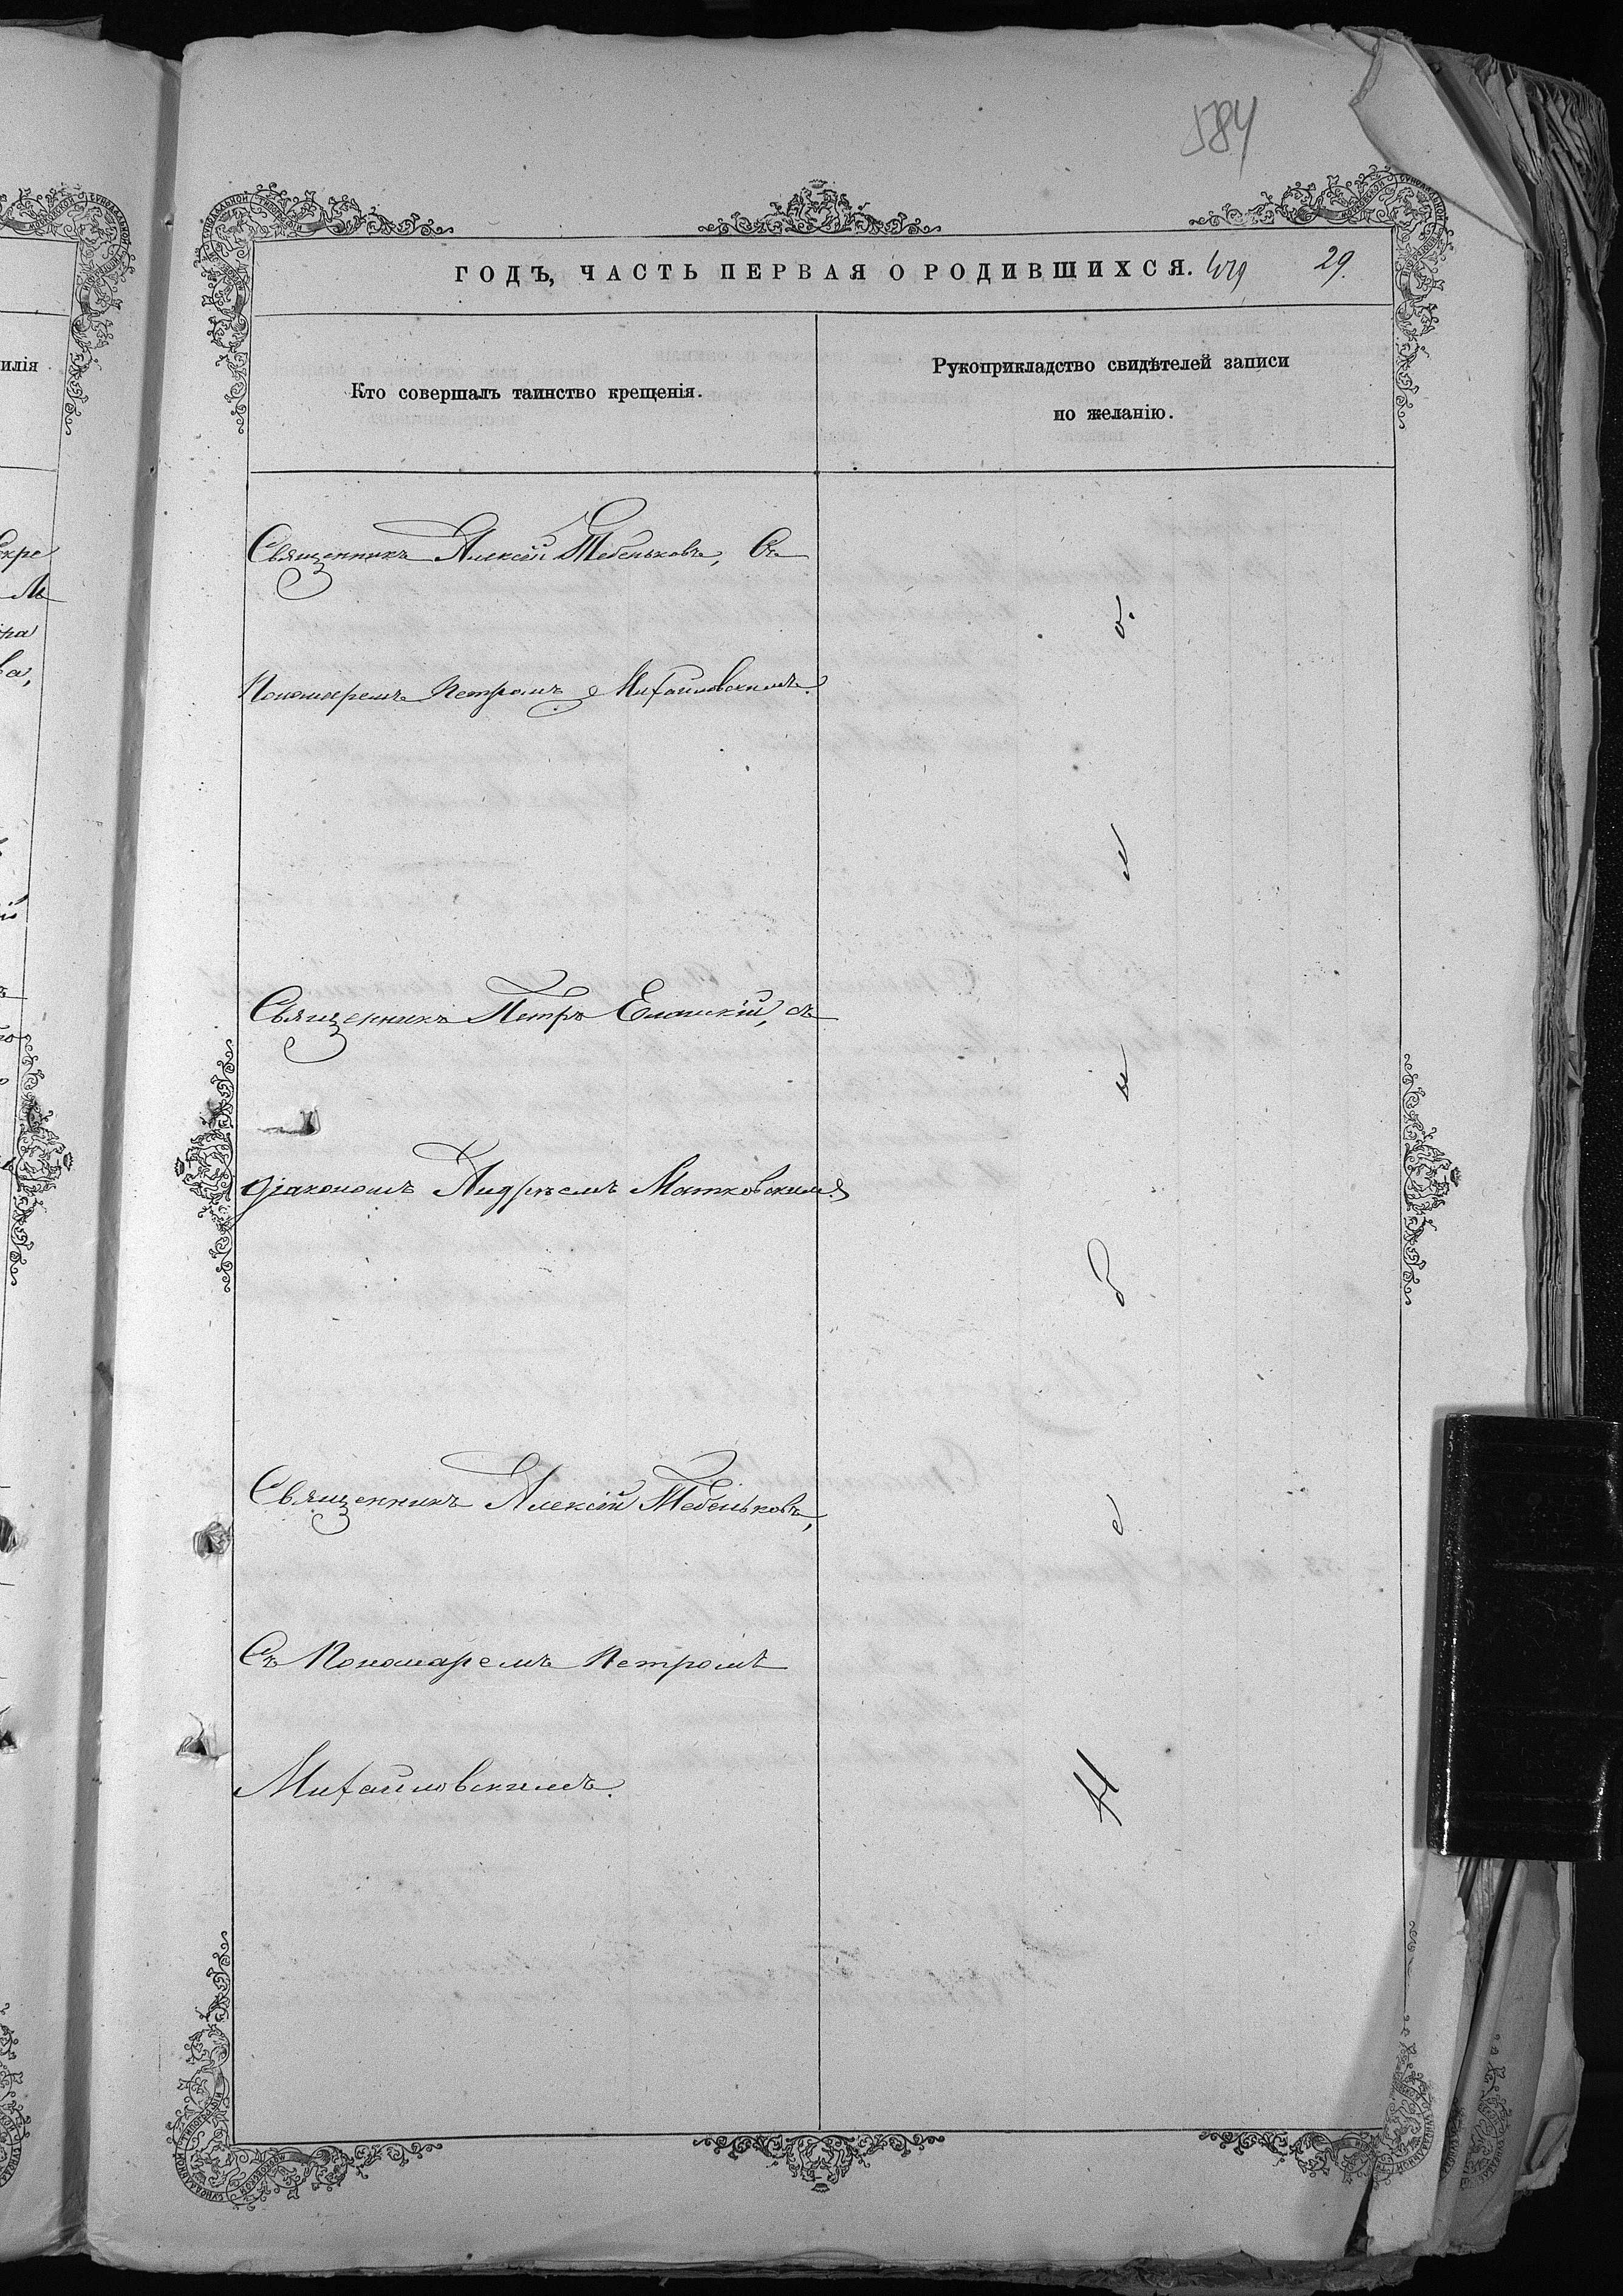 584
ГОДЪ, ЧАСТЬ ПЕРВАЯ О РОДИВШИХСЯ. 29.
Кто совершалъ таинство крещенія.
Рукоприкладство свидѣтелей записи
по желанію.
Священникъ Алексій Тебеньковъ, Съ
Пономаремъ Петромъ Михайловскимъ.
Священникъ Петръ Еланскій, съ
діакономъ Андреемъ Матковскимъ
Священникъ Алексій Тебеньковъ,
Съ Пономаремъ Петромъ
Михайловскимъ.
илія